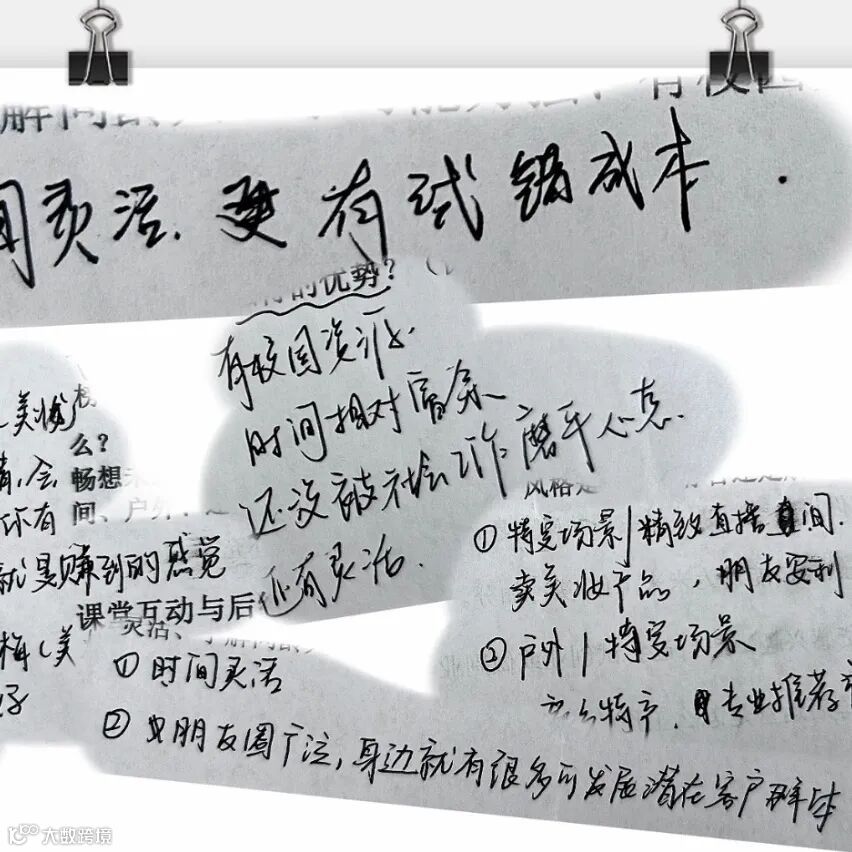 间灵活、更有试错成本.
的优势？
有校园资源.
时间相对富余
还没被社会工作磨平心态.
还有灵活.
美妆
么？
畅想
就是赚到的感觉
课堂互动与后
①特定场景/精致直播间.
卖美妆产品，朋友安利
②户外/特定场景
特产，专业推荐
①时间灵活
②朋友圈广泛，身边就有很多可发展潜在客户群体
大数跨境